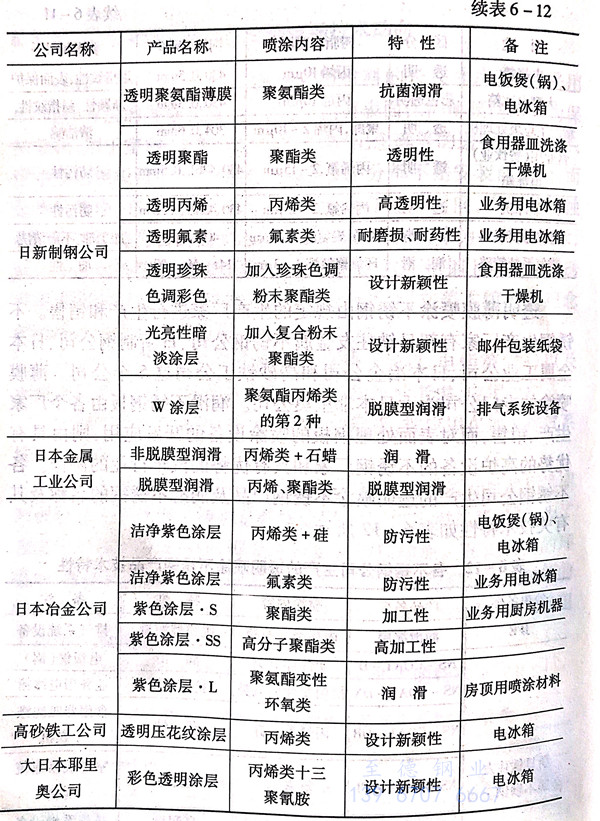 续表6-12
公司名称 产品名称 喷涂内容 特性 备注
日新制钢公司
透明聚氨酯薄膜 聚氨酯类 抗菌润滑 电饭煲(锅)、
电冰箱
透明聚酯 聚酯类 透明性 食用器皿洗涤
干燥机
透明丙烯 丙烯类 高透明性 业务用电冰箱
透明氟素 氟素类 耐磨损、耐药性 业务用电冰箱
透明珍珠 加入珍珠色调 设计新颖性 食用器皿洗涤
色调彩色 粉末聚酯类 干燥机
光亮性暗 加入复合粉末 设计新颖性 邮件包装纸袋
淡涂层 聚酯类
W涂层 聚氨酯丙烯类 脱膜型润滑 排气系统设备
的第2种
日本金属
工业公司
非脱膜型润滑 丙烯类+石蜡 润滑
脱膜型润滑 丙烯、聚酯类 脱膜型润滑
日本冶金公司
洁净紫色涂层 丙烯类+硅 防污性 电饭煲(锅)、
电冰箱
洁净紫色涂层 氟素类 防污性 业务用电冰箱
紫色涂层·S 聚酯类 加工性 业务用厨房机器
紫色涂层·SS 高分子聚酯类 高加工性
紫色涂层·L 聚氨酯变性 润滑 房顶用喷涂材料
环氧类
高砂铁工公司 透明压花纹涂层 丙烯类 设计新颖性 电冰箱
大日本耶里
奥公司
彩色透明涂层 丙烯类十三 设计新颖性 电冰箱
聚氰胺
至德钢业